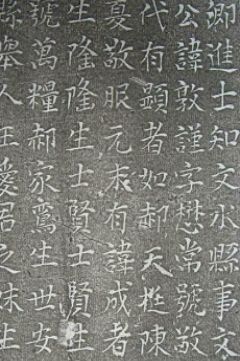 卿進士知文水縣事文
公諱敦謹字懋常號敬
代有顯者如郝天挺陳
夏敬服元末有諱成者
生隆隆生士賢士賢生
號萬糧郝家鸞生世安
舉人王愛君之妹生